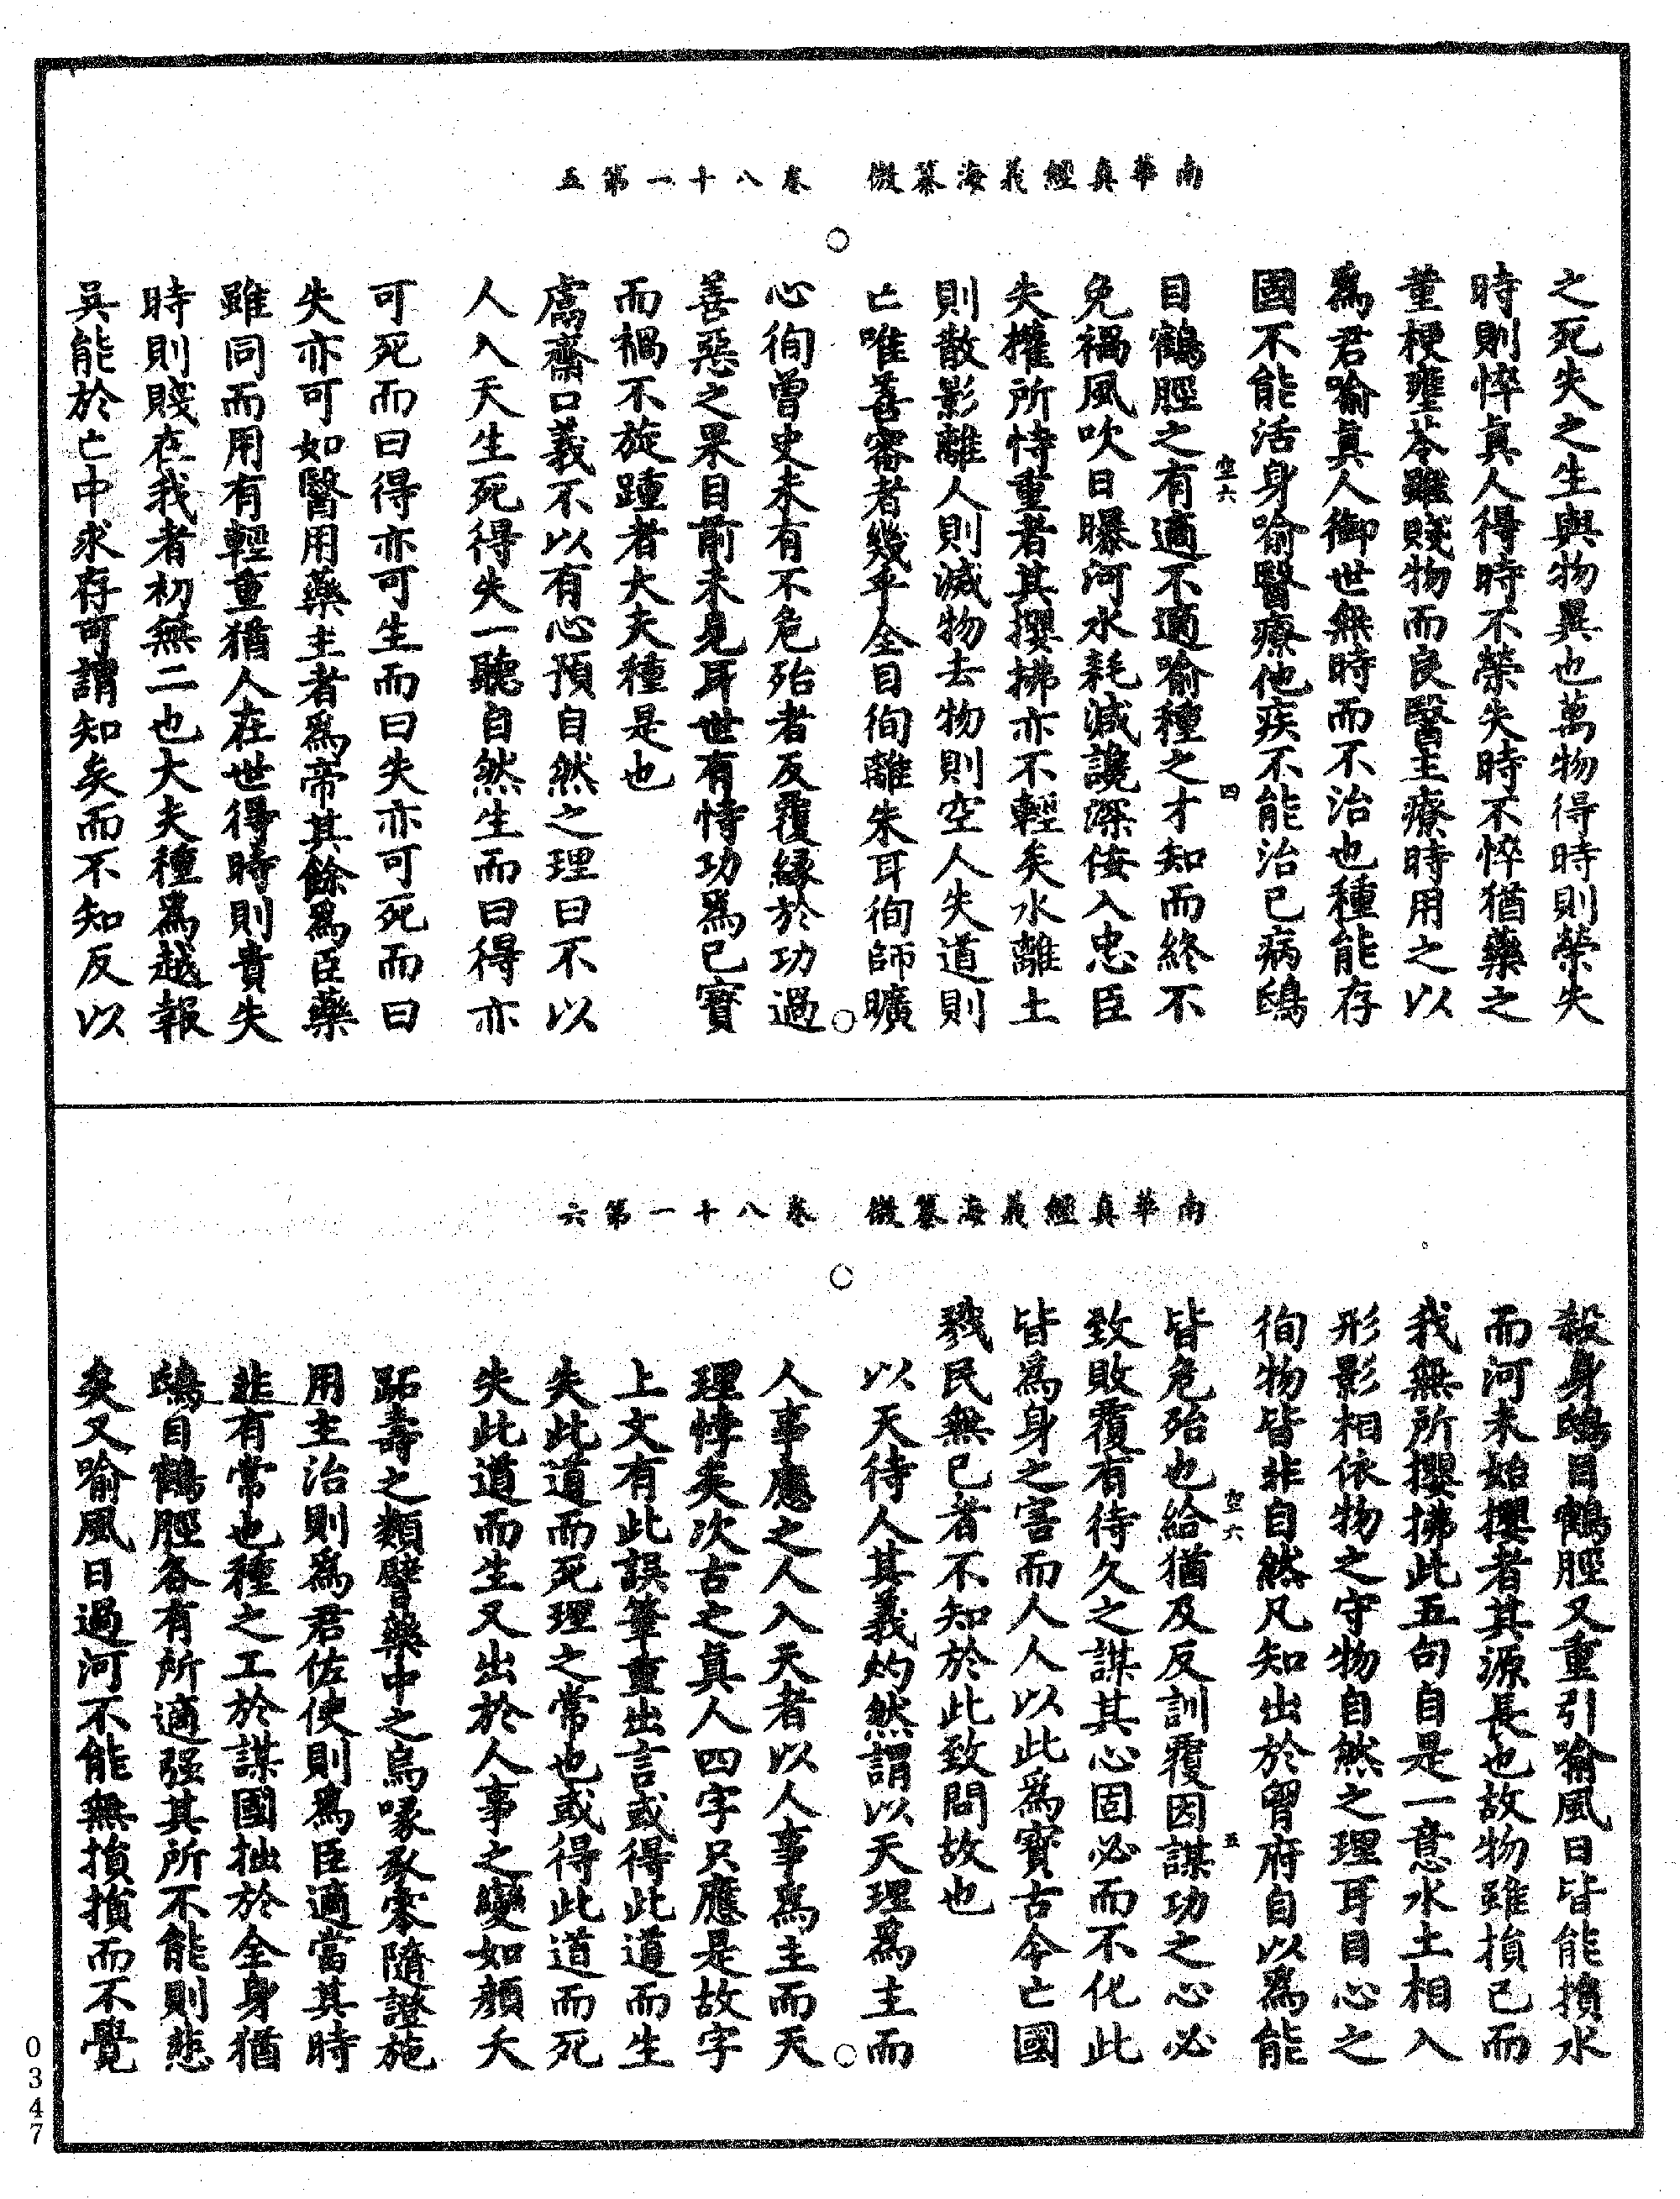 南華真經義海纂微　卷八十一第五
之死失之生與物異也萬物得時則榮失
時則悴真人得時不榮失時不悴猶藥之
菫梗壅苓雖賤物而良醫主療時用之以
爲君喻真人御世無時而不治也種能存
國不能活身喻醫療他疾不能治已病鴟
目鶴脛之有適不適喻種之才知而終不
免禍風吹日曝河水耗減讒深侫入忠臣
失權所恃重者其攖拂亦不輕矣水離土
則散影離人則滅物去物則空人失道則
亡唯善審者幾乎全目徇離朱耳徇師曠
心徇曾史未有不危殆者反覆緣於功過
善惡之果目前未見耳世有恃功爲已寶
而禍不旋踵者大夫種是也
鬳齋口義不以有心預自然之理曰不以
人入天生死得失一聽自然生而曰得亦
可死而曰得亦可生而曰失亦可死而曰
失亦可如醫用藥主者爲帝其餘爲臣藥
雖同而用有輕重猶人在世得時則貴失
時則賤在我者初無二也大夫種爲越報
吳能於亡中求存可謂知矣而不知反以
空六
四
南華真經義海纂微　卷八十一第六
殺身鴟目鶴脛又重引喻風日皆能損水
而河未始攖者其源長也故物雖損已而
我無所攖拂此五句自是一意水土相入
形影相依物之守物自然之理耳目心之
徇物皆非自然凡知出於胷府自以爲能
皆危殆也給猶及反訓覆因謀功之心必
致敗覆有待久之謀其心固必而不化此
皆爲身之害而人人以此爲寶古今亡國
戮民無已者不知於此致問故也
以天待人其義灼然謂以天理爲主而
人事應之人入天者以人事爲主而天
理悖矣次古之真人四字只應是故字
上文有此誤筆重出言或得此道而生
失此道而死理之常也或得此道而死
失此道而生又出於人事之變如顏夭
跖壽之類譬藥中之烏喙豕零隨證施
用主治則爲君佐使則爲臣適當其時
非有常也種之工於謀國拙於全身猶
鴟目鶴脛各有所適强其所不能則悲
矣又喻風日過河不能無損損而不覺
空六
五
0347